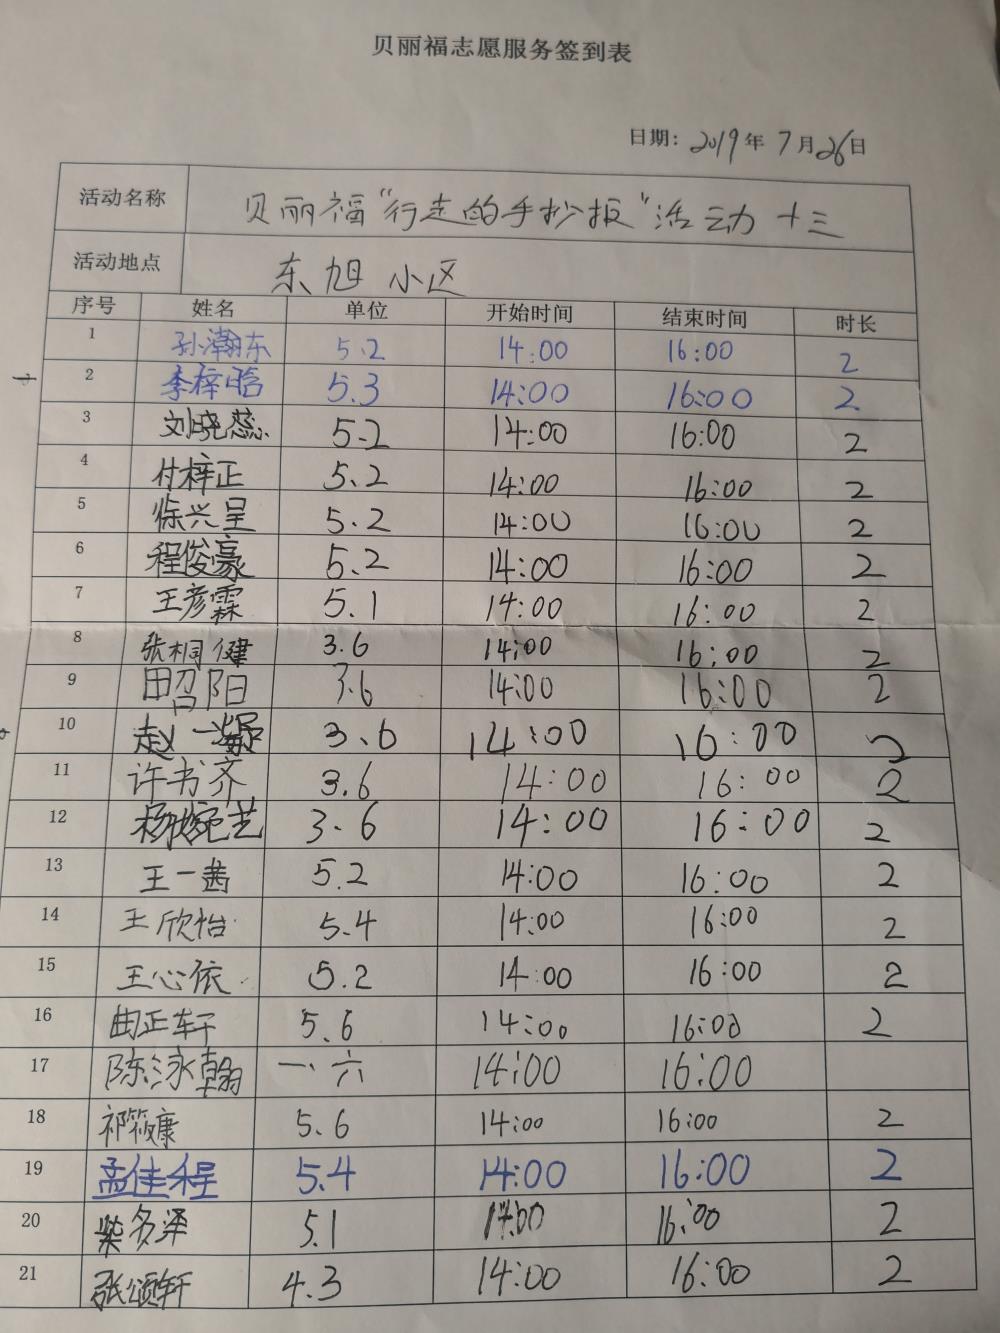 贝丽福志愿服务签到表
日期：2019年7月26日
活动名称 贝丽福“行走的手抄报”活动十三
活动地点 东旭小区
序号 姓名 单位 开始时间 结束时间 时长
1 孙瀚东 5.2 14:00 16:00 2
2 李梓晗 5.3 14:00 16:00 2
3 刘晓蕊 5.2 14:00 16:00 2
4 付梓正 5.2 14:00 16:00 2
5 徐兴呈 5.2 14:00 16:00 2
6 程俊豪 5.2 14:00 16:00 2
7 王彦霖 5.1 14:00 16:00 2
8 张桐健 3.6 14:00 16:00 2
9 田昭阳 3.6 14:00 16:00 2
10 赵一 3.6 14:00 16:00 2
11 许书齐 3.6 14:00 16:00 2
12 杨婉艺 3.6 14:00 16:00 2
13 王一茜 5.2 14:00 16:00 2
14 王欣怡 5.4 14:00 16:00 2
15 王心依 5.2 14:00 16:00 2
16 曲正轩 5.6 14:00 16:00 2
17 陈泳翰 一、六 14:00 16:00
18 祁筱康 5.6 14:00 16:00 2
19 孟佳程 5.4 14:00 16:00 2
20 柴多泽 5.1 14:00 16:00 2
21 张颂轩 4.3 14:00 16:00 2